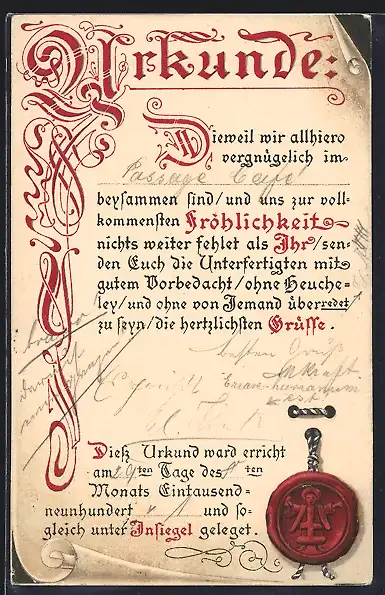 Urkunde:
Dieweil wir allhiero
vergnügelich im
Passage Café
beysammen sind/und uns zur voll-
kommensten Fröhlichkeit
nichts weiter fehlet als Ihr/sen-
den Euch die Unterfertigten mit
gutem Vorbedacht/ohne Heuche-
ley/und ohne von Jemand überredet
zu seyn/die hertzlichsten Grüsse.
besten Gruß
Dieß Urkund ward erricht
am 29ten Tage des ten
Monats Eintausend-
neunhundert und so-
gleich unter Insiegel geleget.